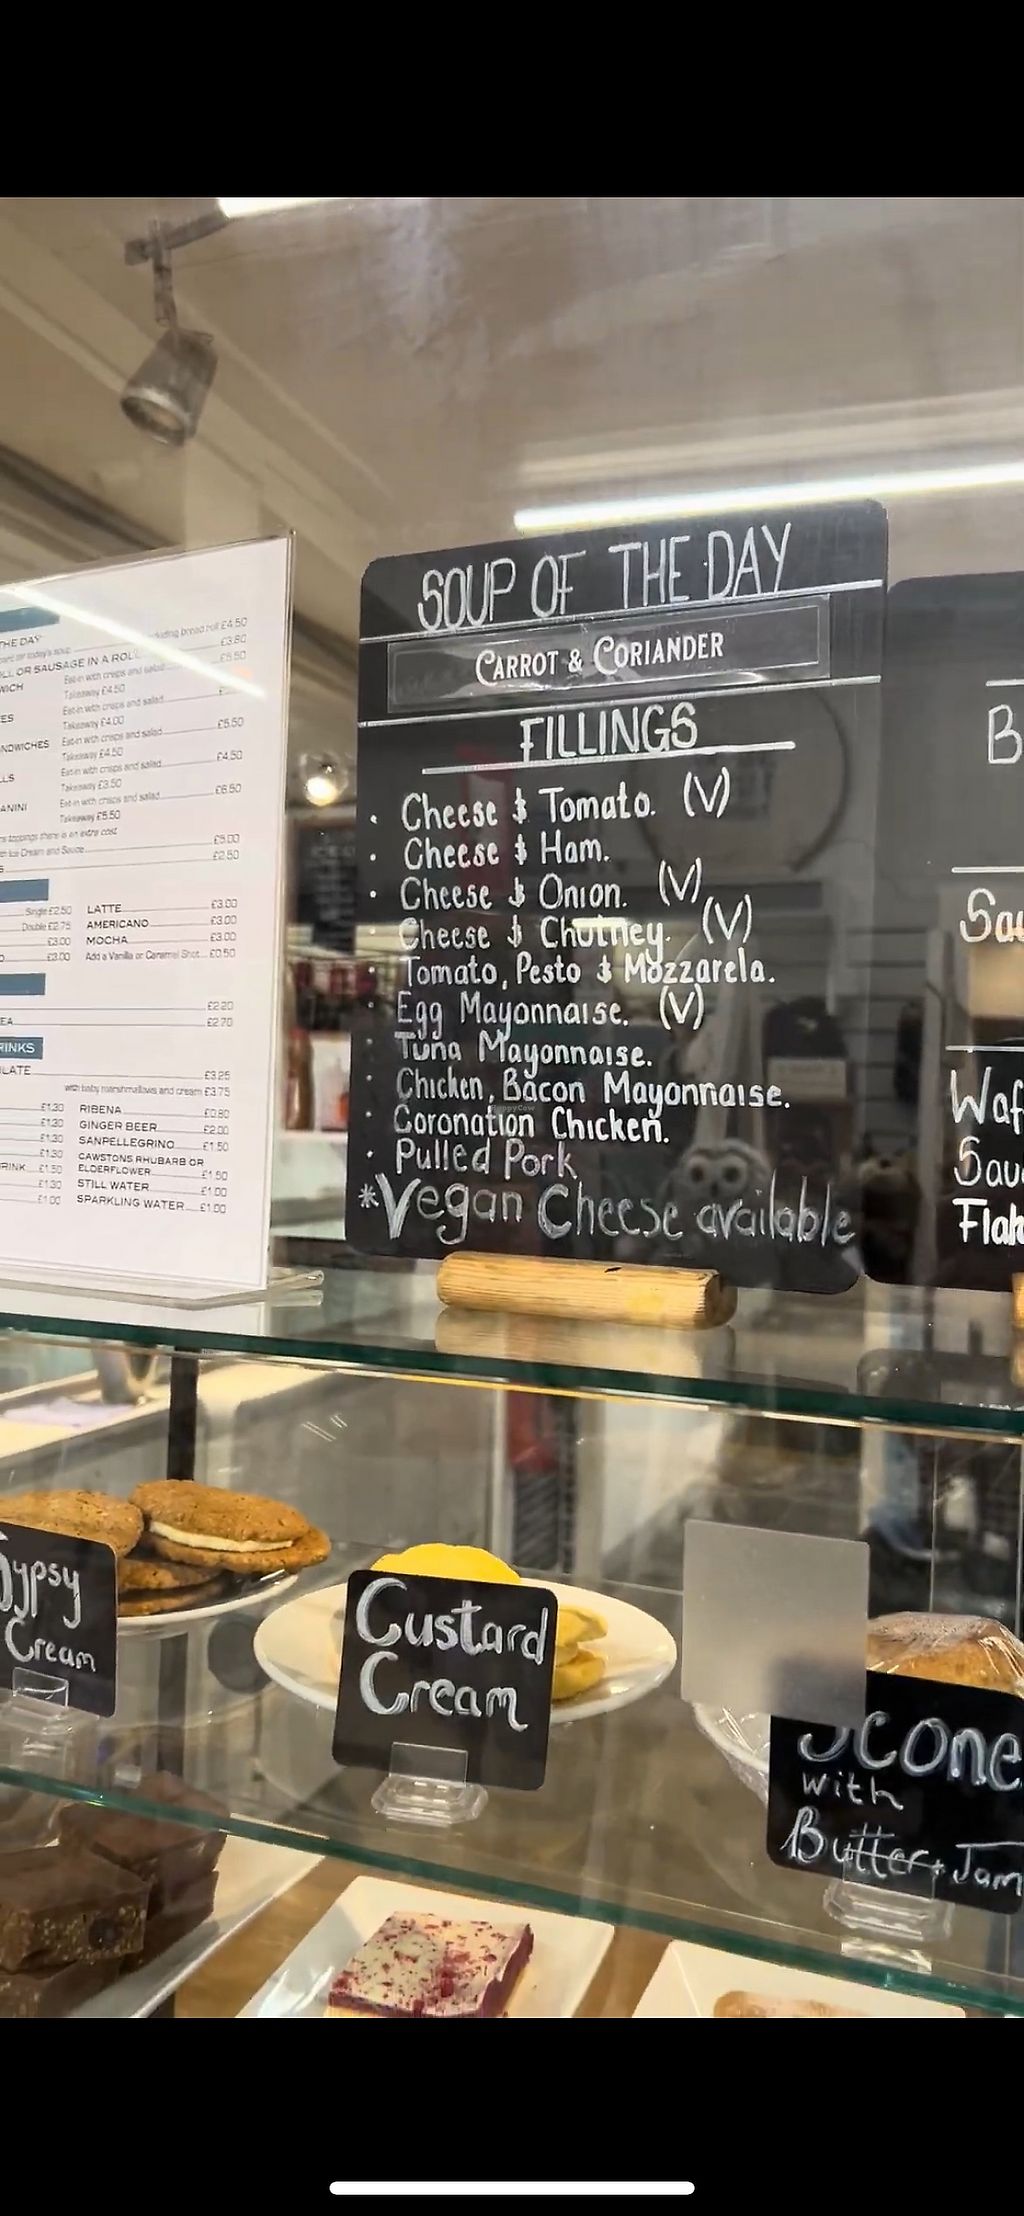 THE DAY
including bread roll £4.50
£3.80
OR SAUSAGE IN A ROLL
Eat-in with crisps and salad £5.50
Takeaway £4.50
Eat-in with crisps and salad
Takeaway £4.00
Eat-in with crisps and salad £5.50
Takeaway £4.50
Eat-in with crisps and salad £4.50
Takeaway £3.50
PANINI Eat-in with crisps and salad £6.50
Takeaway £5.50
toppings there is an extra cost
Ice Cream and Sauce £5.00
£2.50
Single £2.50 LATTE £3.00
Double £2.75 AMERICANO £3.00
£3.00 MOCHA £3.00
£3.00 Add a Vanilla or Caramel Shot £0.50
£2.20
£2.70
£3.25
with baby marshmallows and cream £3.75
£1.30 RIBENA £0.80
£1.30 GINGER BEER £2.00
£1.30 SANPELLEGRINO £1.50
£1.50 CAWSTONS RHUBARB OR
ELDERFLOWER £1.50
£1.30 STILL WATER £1.00
£1.00 SPARKLING WATER £1.00
SOUP OF THE DAY
CARROT & CORIANDER
FILLINGS
• Cheese & Tomato. (V)
• Cheese & Ham.
• Cheese & Onion. (V)
• Cheese & Chutney. (V)
• Tomato, Pesto & Mozzarela.
• Egg Mayonnaise. (V)
• Tuna Mayonnaise.
• Chicken, Bacon Mayonnaise.
• Coronation Chicken.
• Pulled Pork
*Vegan Cheese available
HappyCow
Gypsy
Cream
Custard
Cream
Scone
with
Butter + Jam